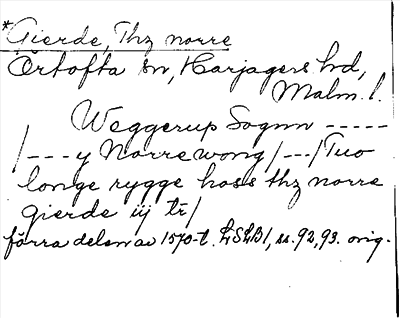 *Gierde, Thz norre
Örtofta sn, Harjagers hd,
Malm. l.
Weggerup Sognn -----
/---y Norre wong/---/Tuo
longe rygge hoss thz norre
gierde iij tr/
förra delen av 1570-t. LSLB1, s. 92, 93. orig.